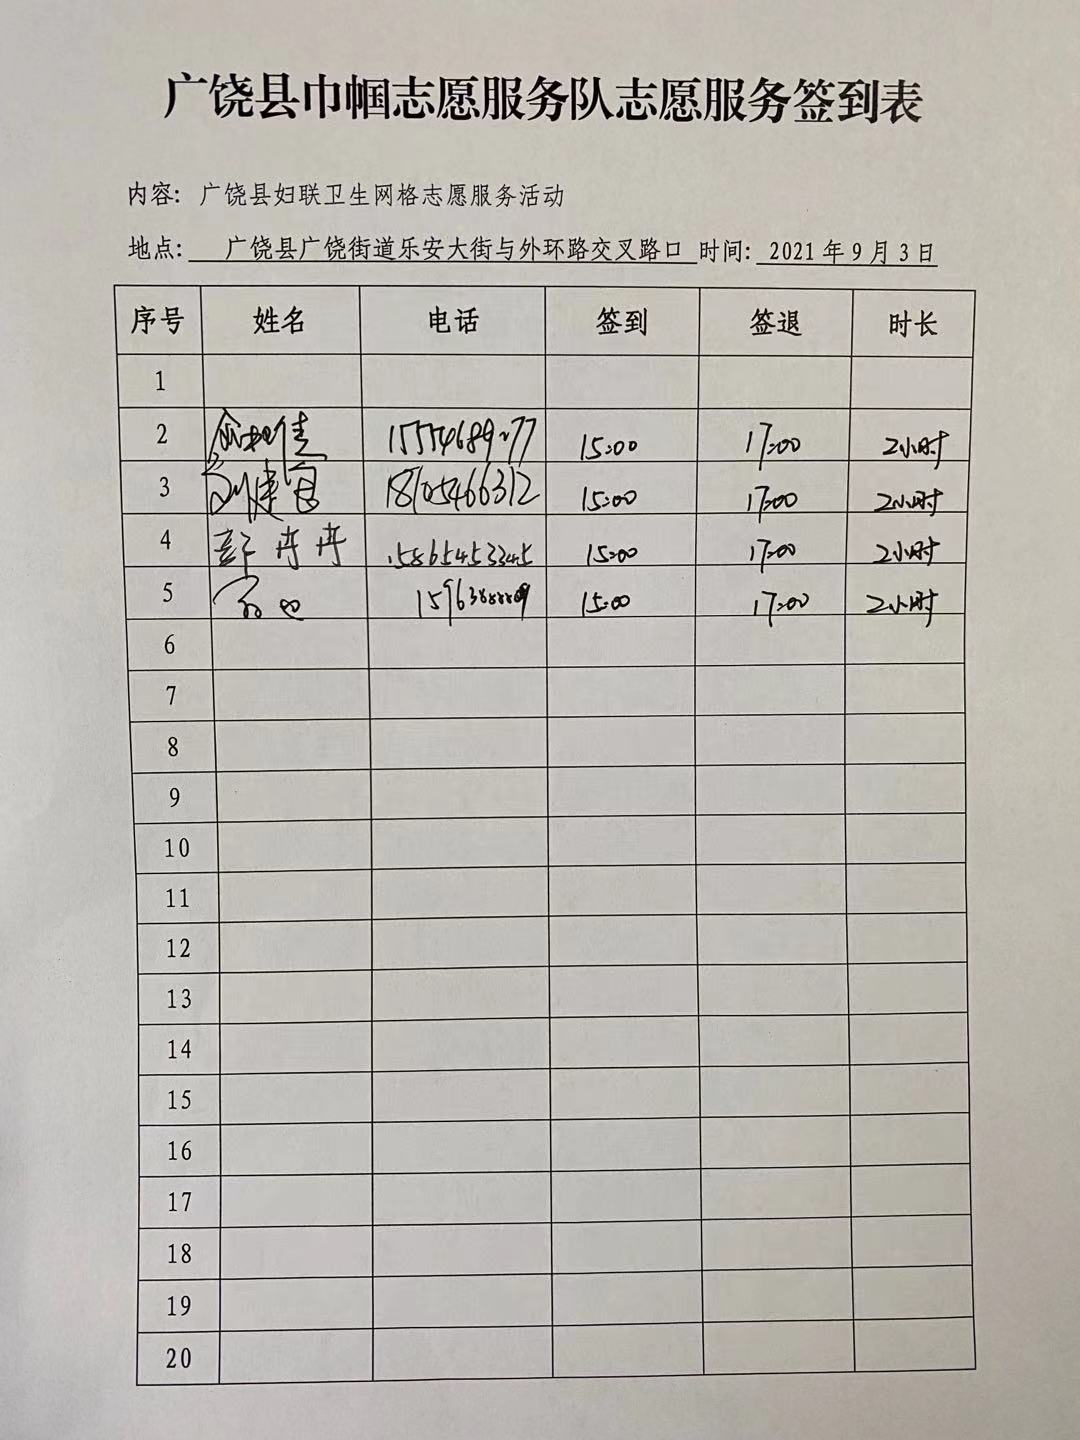 广饶县巾帼志愿服务队志愿服务签到表
内容: 广饶县妇联卫生网格志愿服务活动
地点: 广饶县广饶街道乐安大街与外环路交叉路口 时间: 2021 年 9 月 3 日
序号 姓名 电话 签到 签退 时长
1
2 15:00 17:00 2小时
3 18105466312 15:00 17:00 2小时
4 彭丹丹 15865453345 15:00 17:00 2小时
5 15:00 17:00 2小时
6
7
8
9
10
11
12
13
14
15
16
17
18
19
20